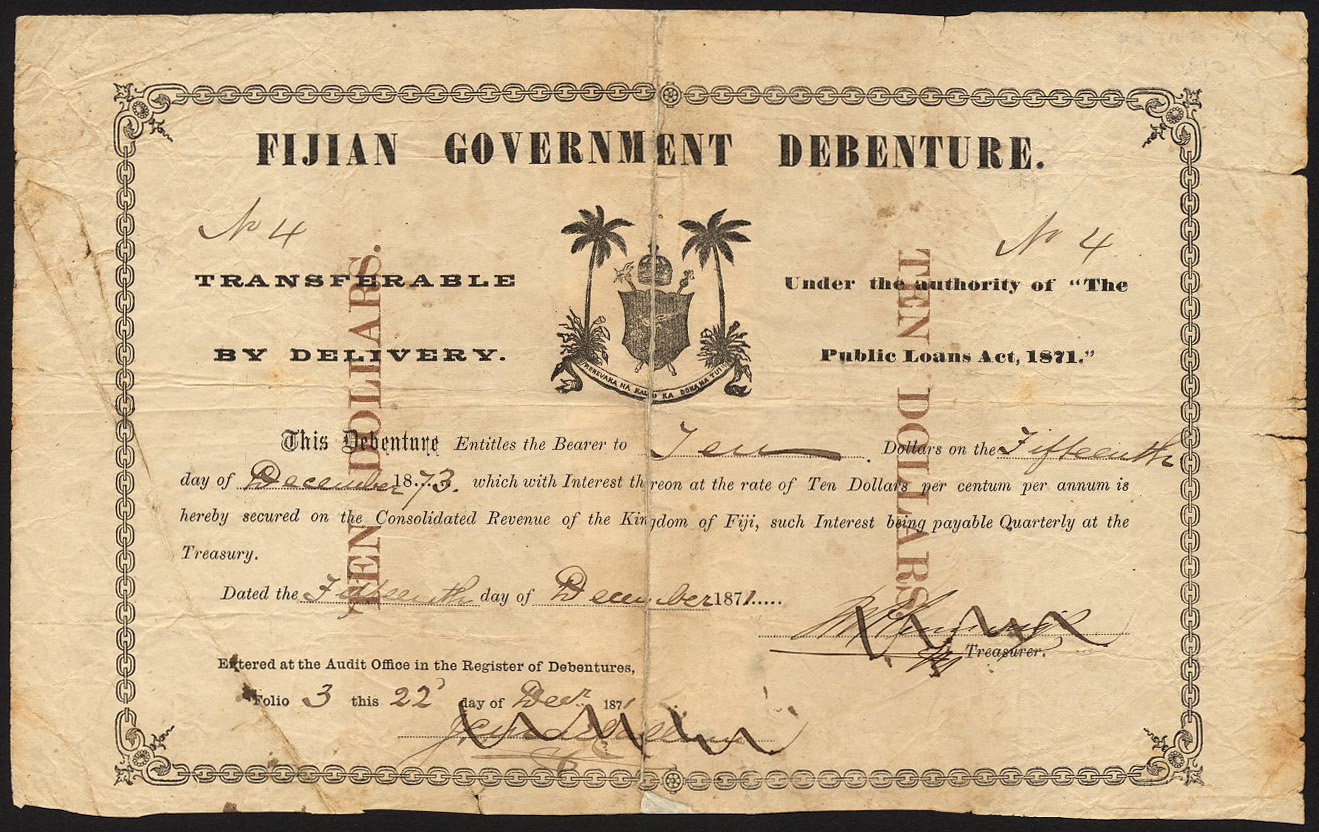 FIJIAN GOVERNMENT DEBENTURE.
No 4
No 4
TRANSFERABLE
BY DELIVERY.
Under the authority of "The
Public Loans Act, 1871."
REREVAKA NA KALOU KA DOKA NA TUI
TEN DOLLARS.
TEN DOLLARS
This Debenture Entitles the Bearer to Ten Dollars on the Fifteenth
day of December 1873. which with Interest thereon at the rate of Ten Dollars per centum per annum is
hereby secured on the Consolidated Revenue of the Kingdom of Fiji, such Interest being payable Quarterly at the
Treasury.
Dated the Fifteenth day of December 1871.....
Treasurer.
Entered at the Audit Office in the Register of Debentures,
Folio 3 this 22 day of Decr 1871